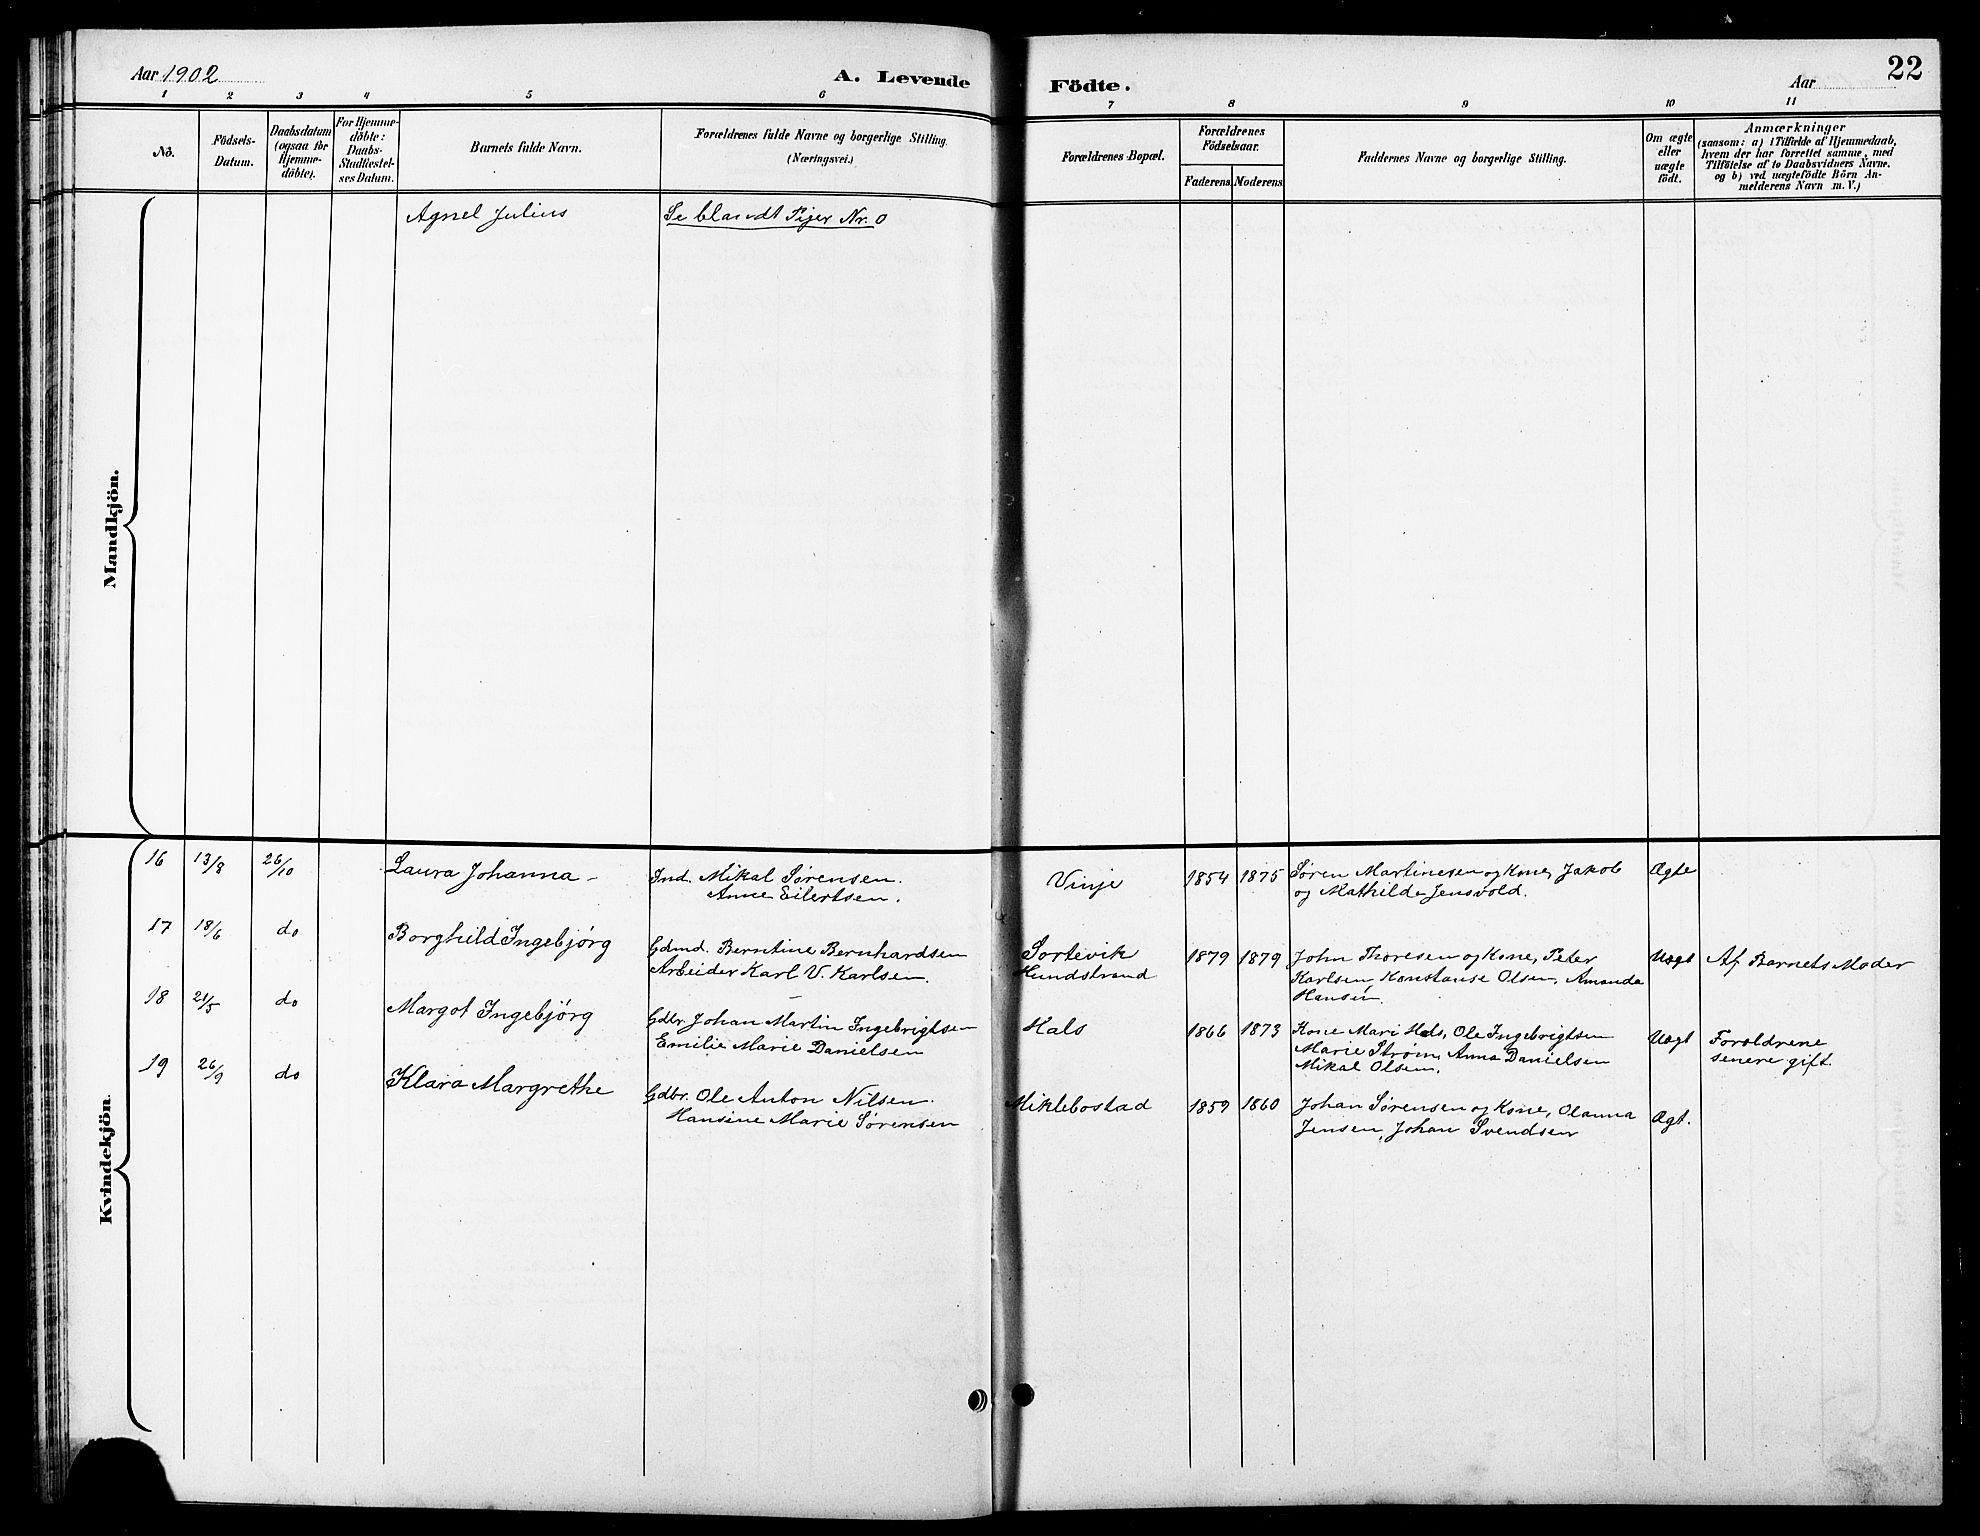 Aar 1902
A. Levende
Födte.
Aar
22
1 2 3 4 5 6 7 8 9 10 11
No.
Födsels-
Datum.
Daabsdatum
(ogsaa for
Hjemme-
döbte).
For Hjemme-
döbte:
Daabs-
Stadfæstel-
ses Datum.
Barnets fulde Navn.
Forældrenes fulde Navne og borgerlige Stilling.
(Næringsvei.)
Forældrenes Bopæl.
Forældrenes
Födselsaar.
Faderens. Moderens.
Faddernes Navne og borgerlige Stilling.
Om ægte
eller
uægte
födt.
Anmærkninger
(saasom: a) i Tilfælde af Hjemmedaab,
hvem der har forrettet samme, med
Tilföielse af to Daabsvidners Navne.
og b) ved uægtefödte Börn An-
melderens Navn m. V.)
Mandkjön.
Agnel Julius
Se blandt Piger Nr. 0
Kvindekjön.
16 13/8 26/10 Laura Johanna –
Ind. Mikal Sørensen.
Anne Eilertsen.
Vinje
1854 1875
Søren Martinesen og Kone, Jakob
og Mathilde Jensvold.
Ægte
17 18/6 do Borghild Ingebjörg
Gdmd. Berntine Bernhardsen
Arbeider Karl V. Karlsen.
Sortevik
Hundstrand
1879 1879
John Thoresen og Kone, Peter
Karlsen, Konstanse Olsen, Amanda
Hansen.
Uægt
Af Barnets Moder
18 21/5 do Margot Ingebjörg
Gdbr. Johan Martin Ingebrigtsen
Emilie Marie Danielsen
Hals
1866 1873
Kone Mari Hals, Ole Ingebrigtsen
Marie Strøm, Anna Danielsen
Mikal Olsen.
Uægt
Foroldrene
senere gift.
19 26/9 do Klara Margrethe
Gdbr. Ole Anton Nilsen.
Hansine Marie Sørensen
Miklebostad
1859 1860
Johan Sørensen og Kone, Olanna
Jensen, Johan Svendsen
Ægt.